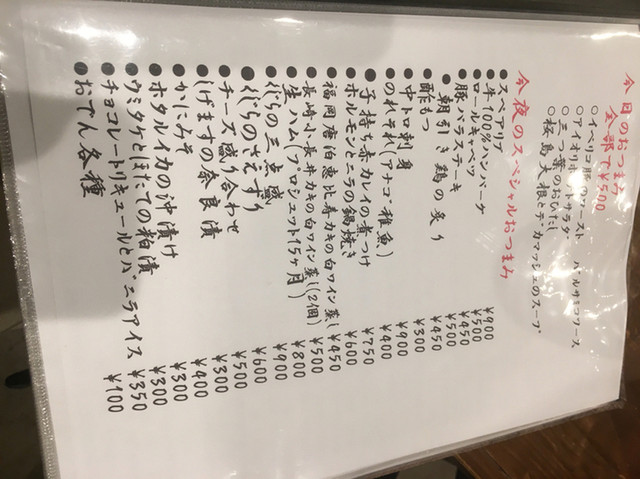 今月のおつまみ
全部で¥500
○イベリコ豚のロースト バルサミコソース
○アイオリポテトサラダ
○三つ葉のおひたし
○桜島大根とデカマッシュのスープ
今夜のスペシャルおつまみ
●スペアリブ ¥900
●牛100%ハンバーグ ¥500
●ロールキャベツ ¥450
●豚バラステーキ ¥500
●朝引き鶏の炙り ¥450
●酢もつ ¥300
●中トロ刺身 ¥700
●のれそれ(アナゴ稚魚) ¥400
●子持ち赤カレイの煮つけ ¥750
●ホルモンとニラの鍋焼き ¥600
●福岡唐泊恵比寿カキの白ワイン蒸し ¥450
●長崎小長井カキの白ワイン蒸し(2個) ¥500
●生ハム(プロシュット15ヶ月) ¥800
●くじらの三点盛 ¥900
●くじらのさえずり ¥600
●チーズ盛り合わせ ¥500
●しげますの奈良漬 ¥300
●かにみそ ¥400
●ホタルイカの沖漬け ¥300
●ウミタケとほたての粕漬 ¥300
●チョコレートリキュールとバニラアイス ¥350
●おでん各種 ¥100